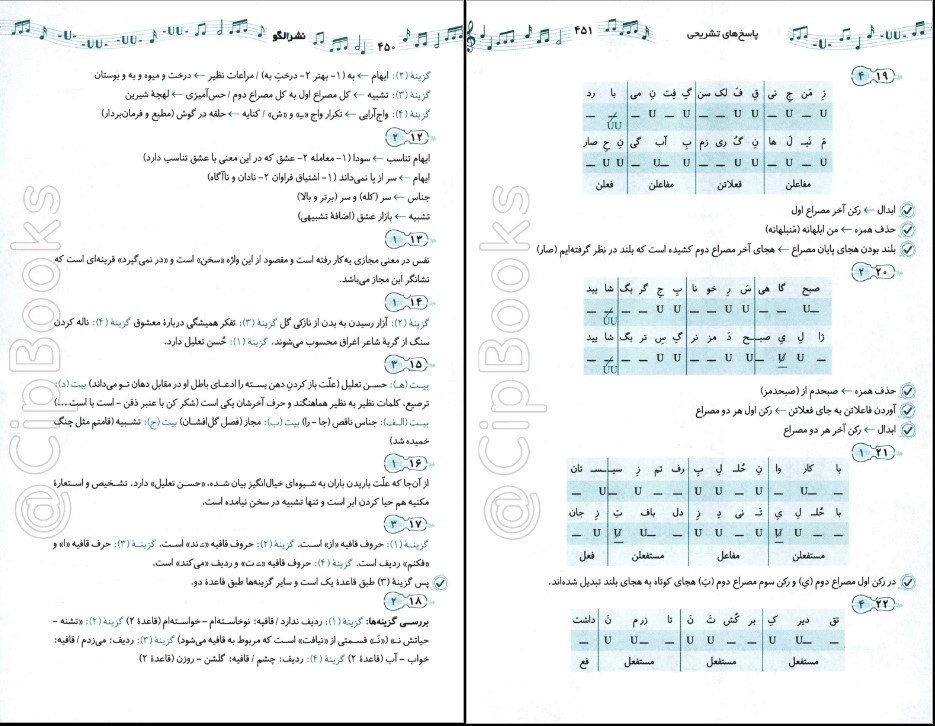 پاسخ‌های تشریحی
۴۵۱
۱۹ ۴
زِ مَن جِ نی قِ فَ لک سن گِ فِت نِ می با رد
U _ U _ U U _ _ U _ U _ _ UU
مَ نَبـ لَ ها نِ گُ ری زم بِ آب گی نِ حِ صار
U _ U _ U U _ _ U _ U _ U U _
مفاعلن فعلاتن مفاعلن فعلن
ابدال ← رکن آخر مصراع اول
حذف همزه ← من ابلهانه (مَنبلهانه)
بلند بودن هجای پایان مصراع ← هجای آخر مصراع دوم کشیده است که بلند در نظر گرفته‌ایم (صار)
۲۰ ۲
صبح گا هی سَ رِ خو نا بِ جِ گر بگ شا یید
ژا لِ یِ صبـح دَ مز نر گِ سِ تر بگ شا یید
حذف همزه ← صبحدم از (صبحدمز)
آوردن فاعلاتن به جای فعلاتن ← رکن اول هر دو مصراع
ابدال ← رکن آخر هر دو مصراع
۲۱ ۱
با کار وا نِ حُلـ لِ بِ رف تم زِ سیـ سـ تان
با حُلـ لِ یِ تَـ نی دِ زِ دل باف تِ زِ جان
مستفعلن مفاعل مستفعلن فعل
در رکن اول مصراع دوم (ي) و رکن سوم مصراع دوم (تِ) هجای کوتاه به هجای بلند تبدیل شده‌اند.
۲۲ ۴
تق دیر کِ بر کُش تَ نَ تا زرم نَ داشت
مستفعل مستفعل مستفعل فع
نشرالگو
۴۵۰
گزینهٔ (۲): ایهام ← به (۱- بهتر ۲- درختِ به) / مراعات نظیر ← درخت و میوه و به و بوستان
گزینهٔ (۳): تشبیه ← کل مصراع اول به کل مصراع دوم / حس‌آمیزی ← لهجهٔ شیرین
گزینهٔ (۴): واج‌آرایی ← تکرار واج «ـِ» و «ش» / کنایه ← حلقه در گوش (مطیع و فرمان‌بردار)
۱۲ ۲
ایهام تناسب ← سودا (۱- معامله ۲- عشق که در این معنی با عشق تناسب دارد)
ایهام ← سر از پا نمی‌داند (۱- اشتیاق فراوان ۲- نادان و ناآگاه)
جناس ← سر (کله) و سر (برتر و بالا)
تشبیه ← بازار عشق (اضافهٔ تشبیهی)
۱۳ ۱
نفس در معنی مجازی به‌کار رفته است و مقصود از این واژه «سخن» است و «در نمی‌گیرد» قرینه‌ای است که
نشانگر این مجاز می‌باشد.
۱۴ ۱
گزینهٔ (۲): آزار رسیدن به بدن از نازکی گل گزینهٔ (۳): تفکر همیشگی دربارهٔ معشوق گزینهٔ (۴): ناله کردن
سنگ از گریهٔ شاعر اغراق محسوب می‌شوند. گزینهٔ (۱): حُسن تعلیل دارد.
۱۵ ۳
بیت (هـ): حسن تعلیل (علّت باز کردن دهن بسته را ادعای باطل او در مقابل دهان تو می‌داند) بیت (د):
ترصیع. کلمات نظیر به نظیر هماهنگند و حرف آخرشان یکی است (شکر کن با عنبر ذقن - است با است ...)
بیت (الف): جناس ناقص (جا - را) بیت (ب): مجاز (فصل گل‌افشان) بیت (ج): تشبیه (قامتم مثل چنگ
خمیده شد)
۱۶ ۱
از آن‌جا که علّت باریدن باران به شیوه‌ای خیال‌انگیز بیان شده، «حسن تعلیل» دارد. تشخیص و استعارهٔ
مکنیه هم حیا کردن ابر است و تنها تشبیه در سخن نیامده است.
۱۷ ۳
گزینهٔ (۱): حروف قافیه «از» است. گزینهٔ (۲): حروف قافیه «ـَ ند» است. گزینهٔ (۳): حرف قافیه «ا» و
«فکنم» ردیف است. گزینهٔ (۴): حروف قافیه «ـَ ت» و ردیف «می‌کند» است.
پس گزینهٔ (۳) طبق قاعدهٔ یک است و سایر گزینه‌ها طبق قاعدهٔ دو.
۱۸ ۲
بررسی گزینه‌ها: گزینهٔ (۱): ردیف ندارد / قافیه: نوخاسته‌ام - خواسته‌ام (قاعدهٔ ۲) گزینهٔ (۲): «تشنه -
حیاتش نـَ» («نـَ» قسمتی از «نیافت» است که مربوط به قافیه می‌شود) گزینهٔ (۳): ردیف: می‌زدم / قافیه:
خواب - آب (قاعدهٔ ۲) گزینهٔ (۴): ردیف: چشم / قافیه: گلشن - روزن (قاعدهٔ ۲)
@CipBooks
@CipBooks